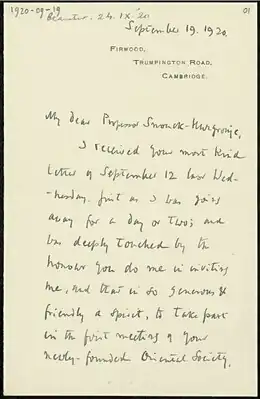 1920-09-19
24.IX.'20
01
September 19. 1920
FIRWOOD,
TRUMPINGTON ROAD,
CAMBRIDGE.
My dear Professor Snouck-Hurgronje,
I received your most kind
letter of September 12 last Wed-
-nesday, just as I was going
away for a day or two; and
was deeply touched by the
honour you do me in inviting
me, and that in so generous &
friendly a spirit, to take part
in the first meeting of your
newly-founded Oriental Society.